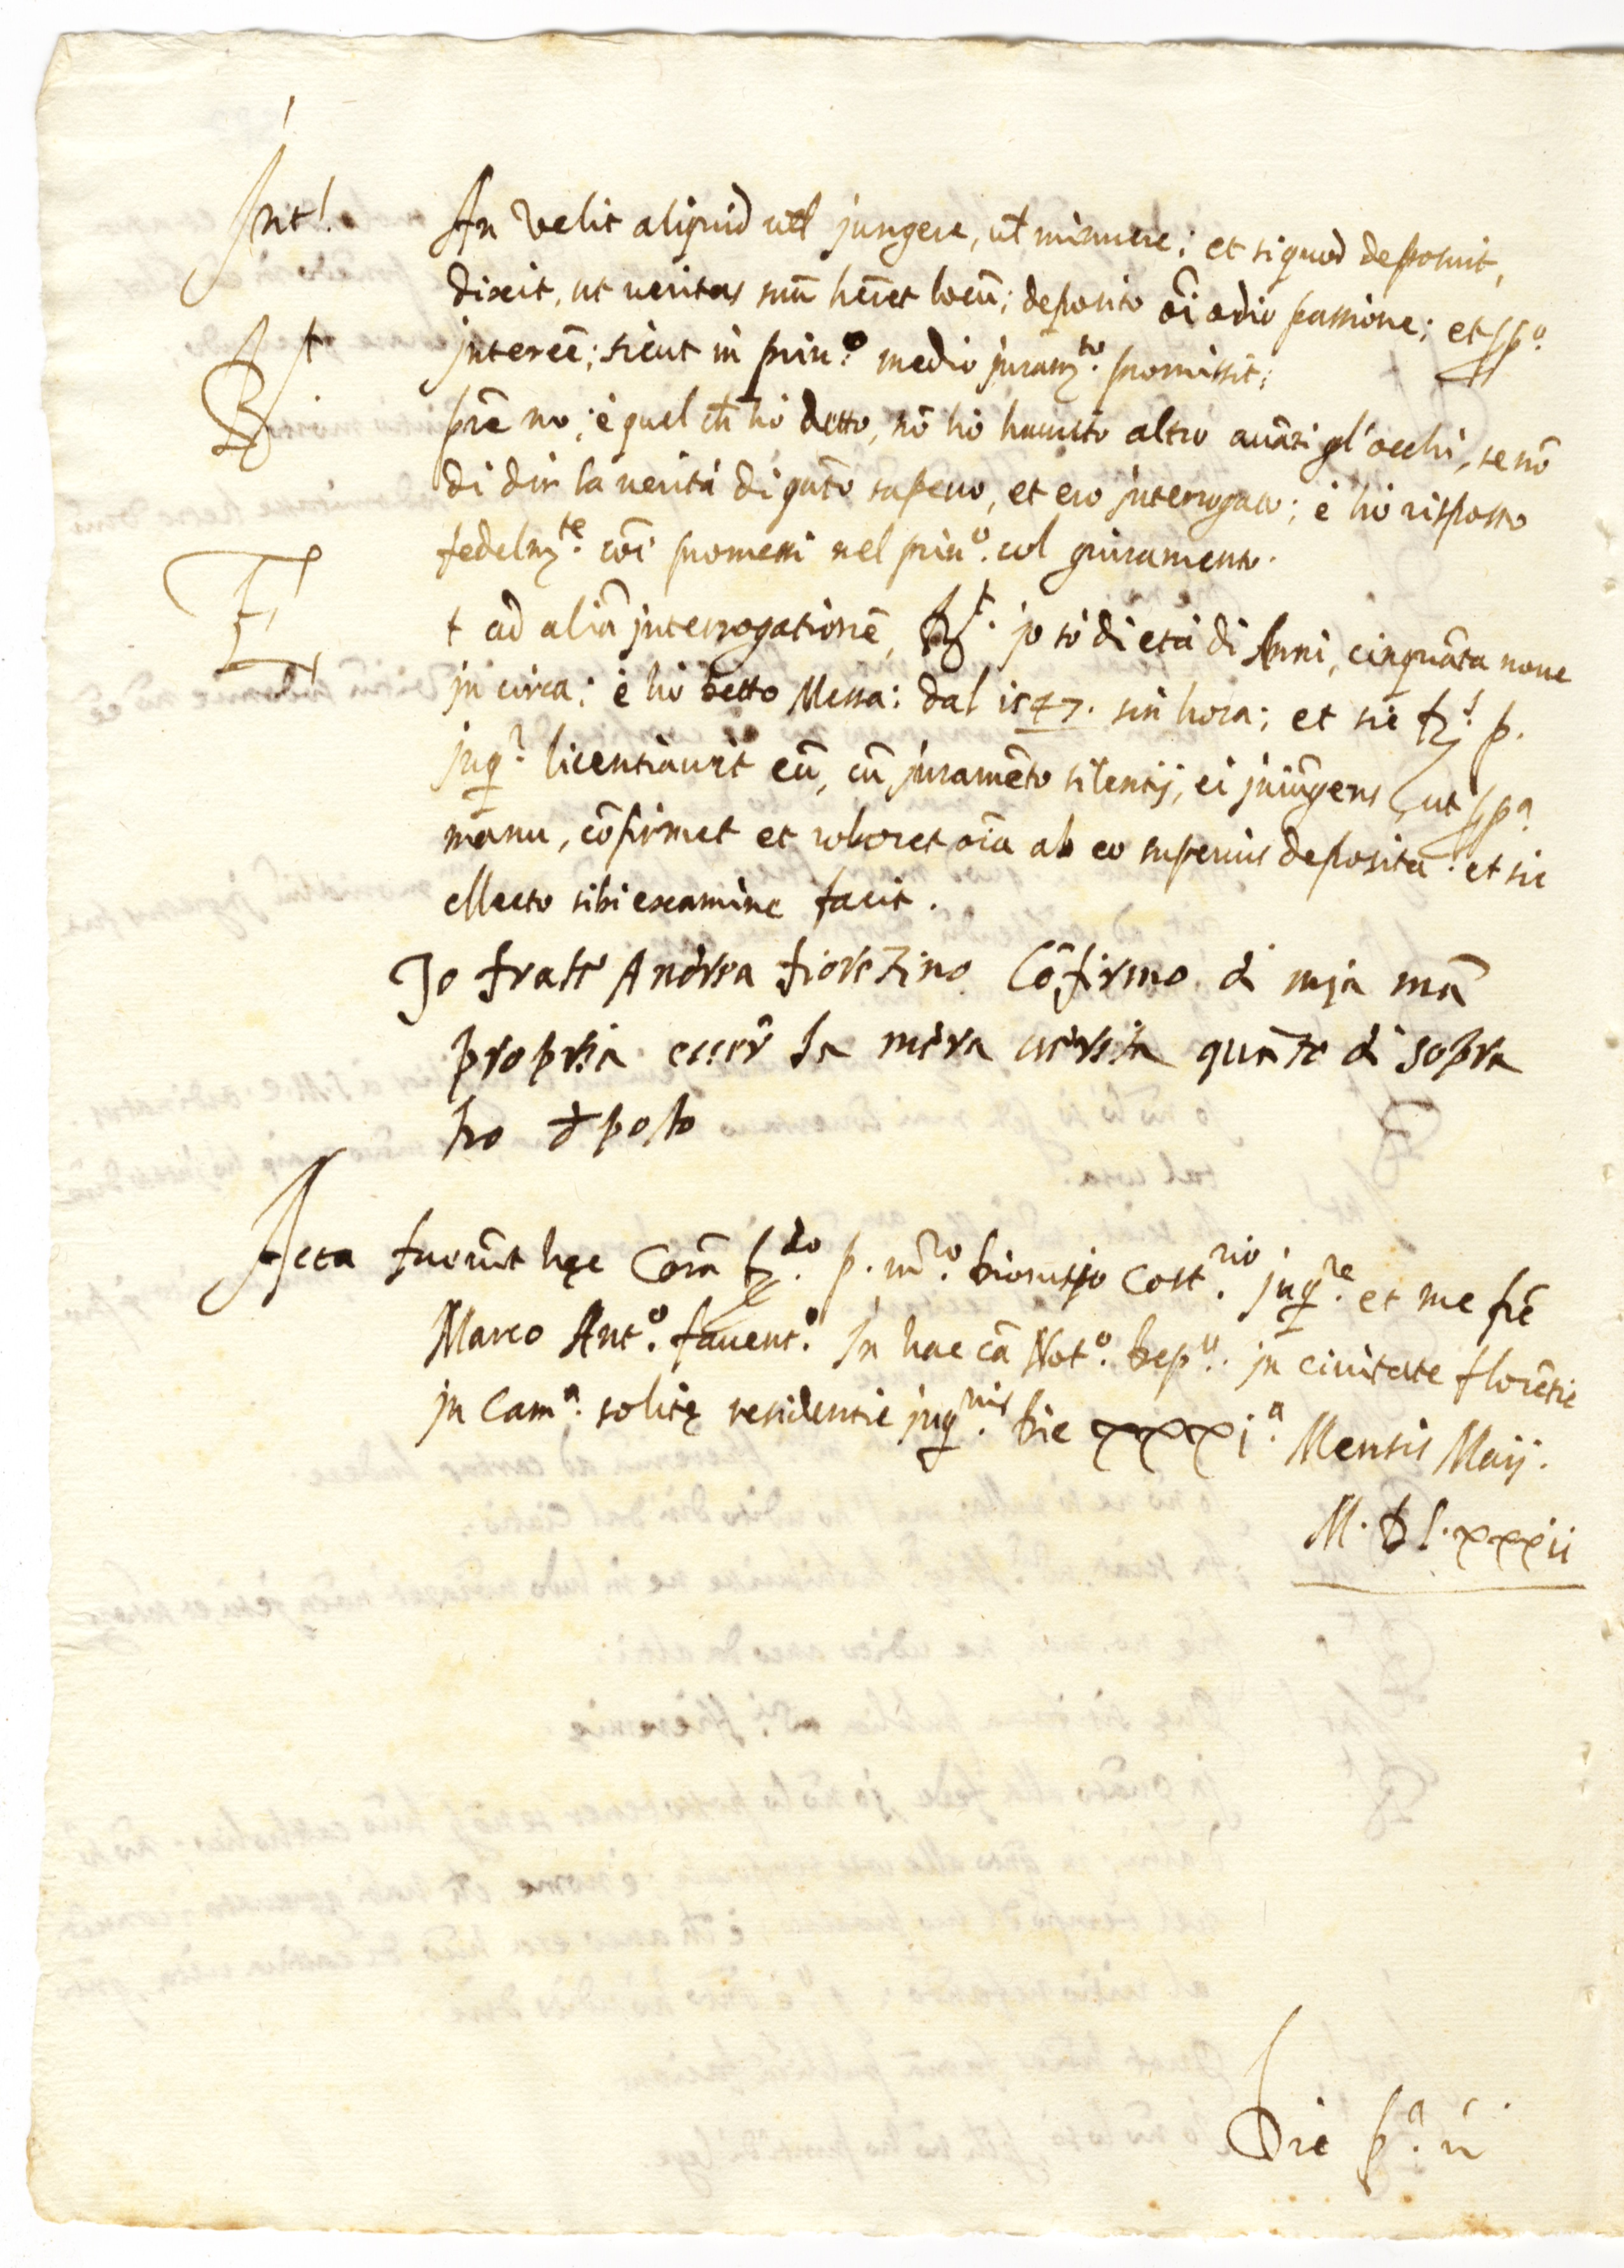 Int! An velit aliquid vel jungere, vł minuere; et si quod deposuit,
dixit, ut veritas suū hēret locū; deposito oī odio passione; et ppᵒ.
interēē; sicut in prinᵒ. medio juramᵗᵒ. promissit;
Rᵗ. prē no; è quel ch̄ hò detto, nō hò hauuto altro auāti gl'occhi, se nō
di dir la verità di quāto sapeuo, et ero interrogato; è hò risposto
fedelmᵗᵉ. cōi promessi nel prinᵒ. col giuramento.
Et ad aliā interrogationē, Rᵗ. jo sò di età di Anni, cinquāta noue
in circa; è hò detto Messa; dal 1547. sin hora; et sic R! p.
inqʳ. licentiauit eū, cū juramēto silentij, ei iniūgens, ut ppᵃ
manu, cōfirmet et roboret oīa ab eo superius deposita. et sic
effecto sibi examine facit.
Io frate Andrea fiorezino Cōfirmo di mja mā
propria esser la mera uerita quāto di sopra
ho dposto
Acta fuerūt hęc Corā Rᵈᵒ. p. mʳᵒ. Dionisijo Costʳⁱᵒ. inqʳᵉ. et me frē
Marco Antᵒ. fauentᵒ. In hac cā Notᵒ. Depᵒ. in ciuitate florētie
in Camᵃ. solitę residentie inqⁿⁱˢ. Die xxxiᵃ. Mensis Maij.
M.D L.xxxii
Die pᵃ.